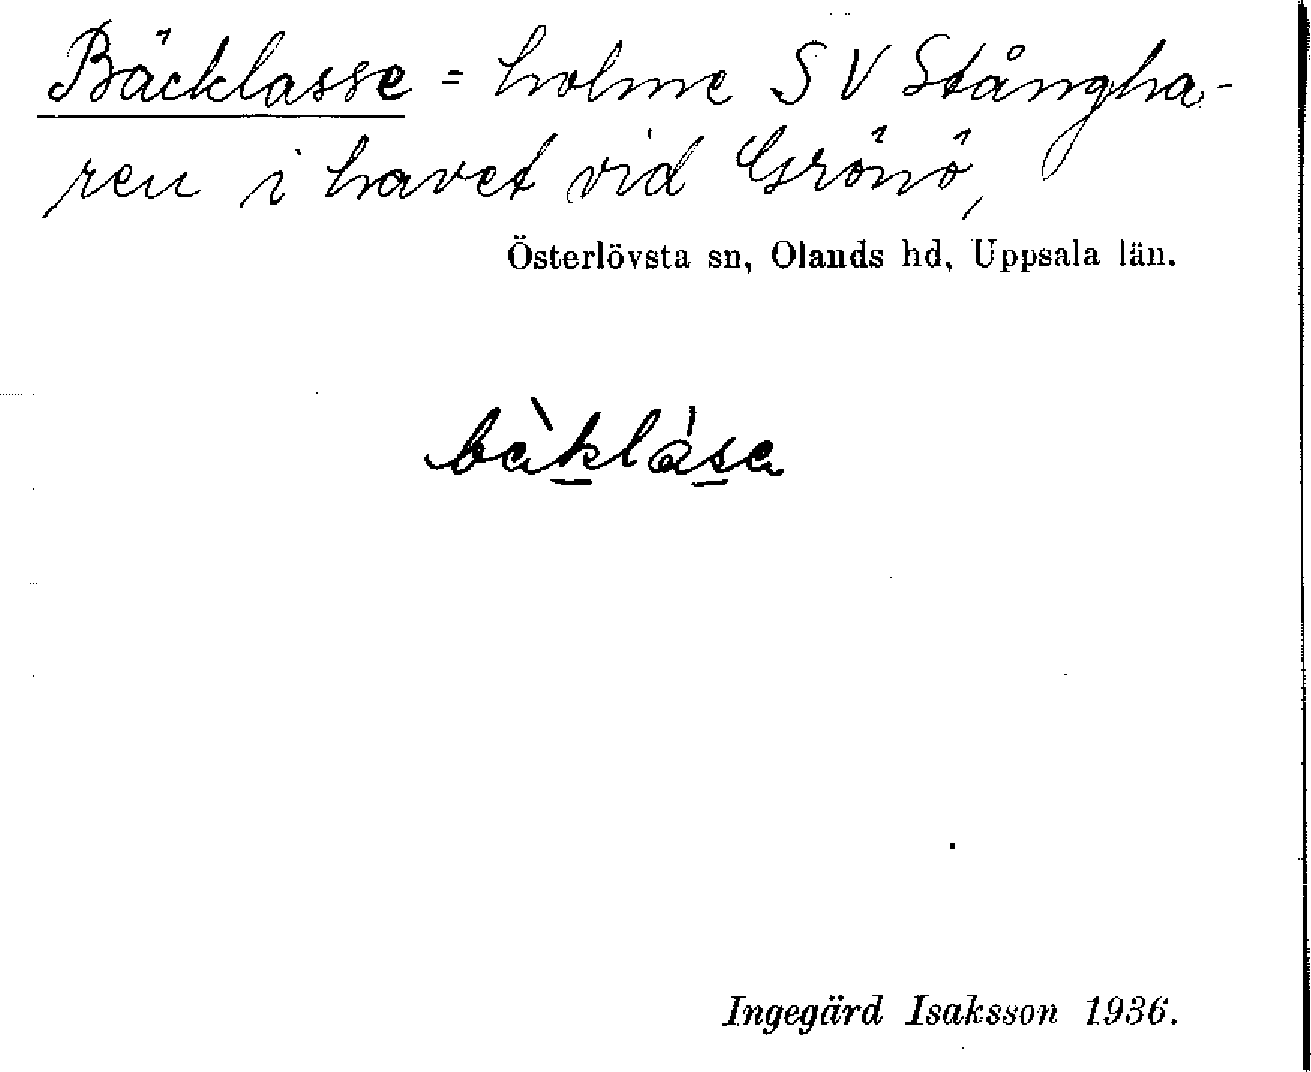 Bäcklasse = holme SV Stångha-
ren i havet vid Grönö,
Österlövsta sn, Olands hd, Uppsala län.
bàklása
Ingegärd Isaksson 1936.